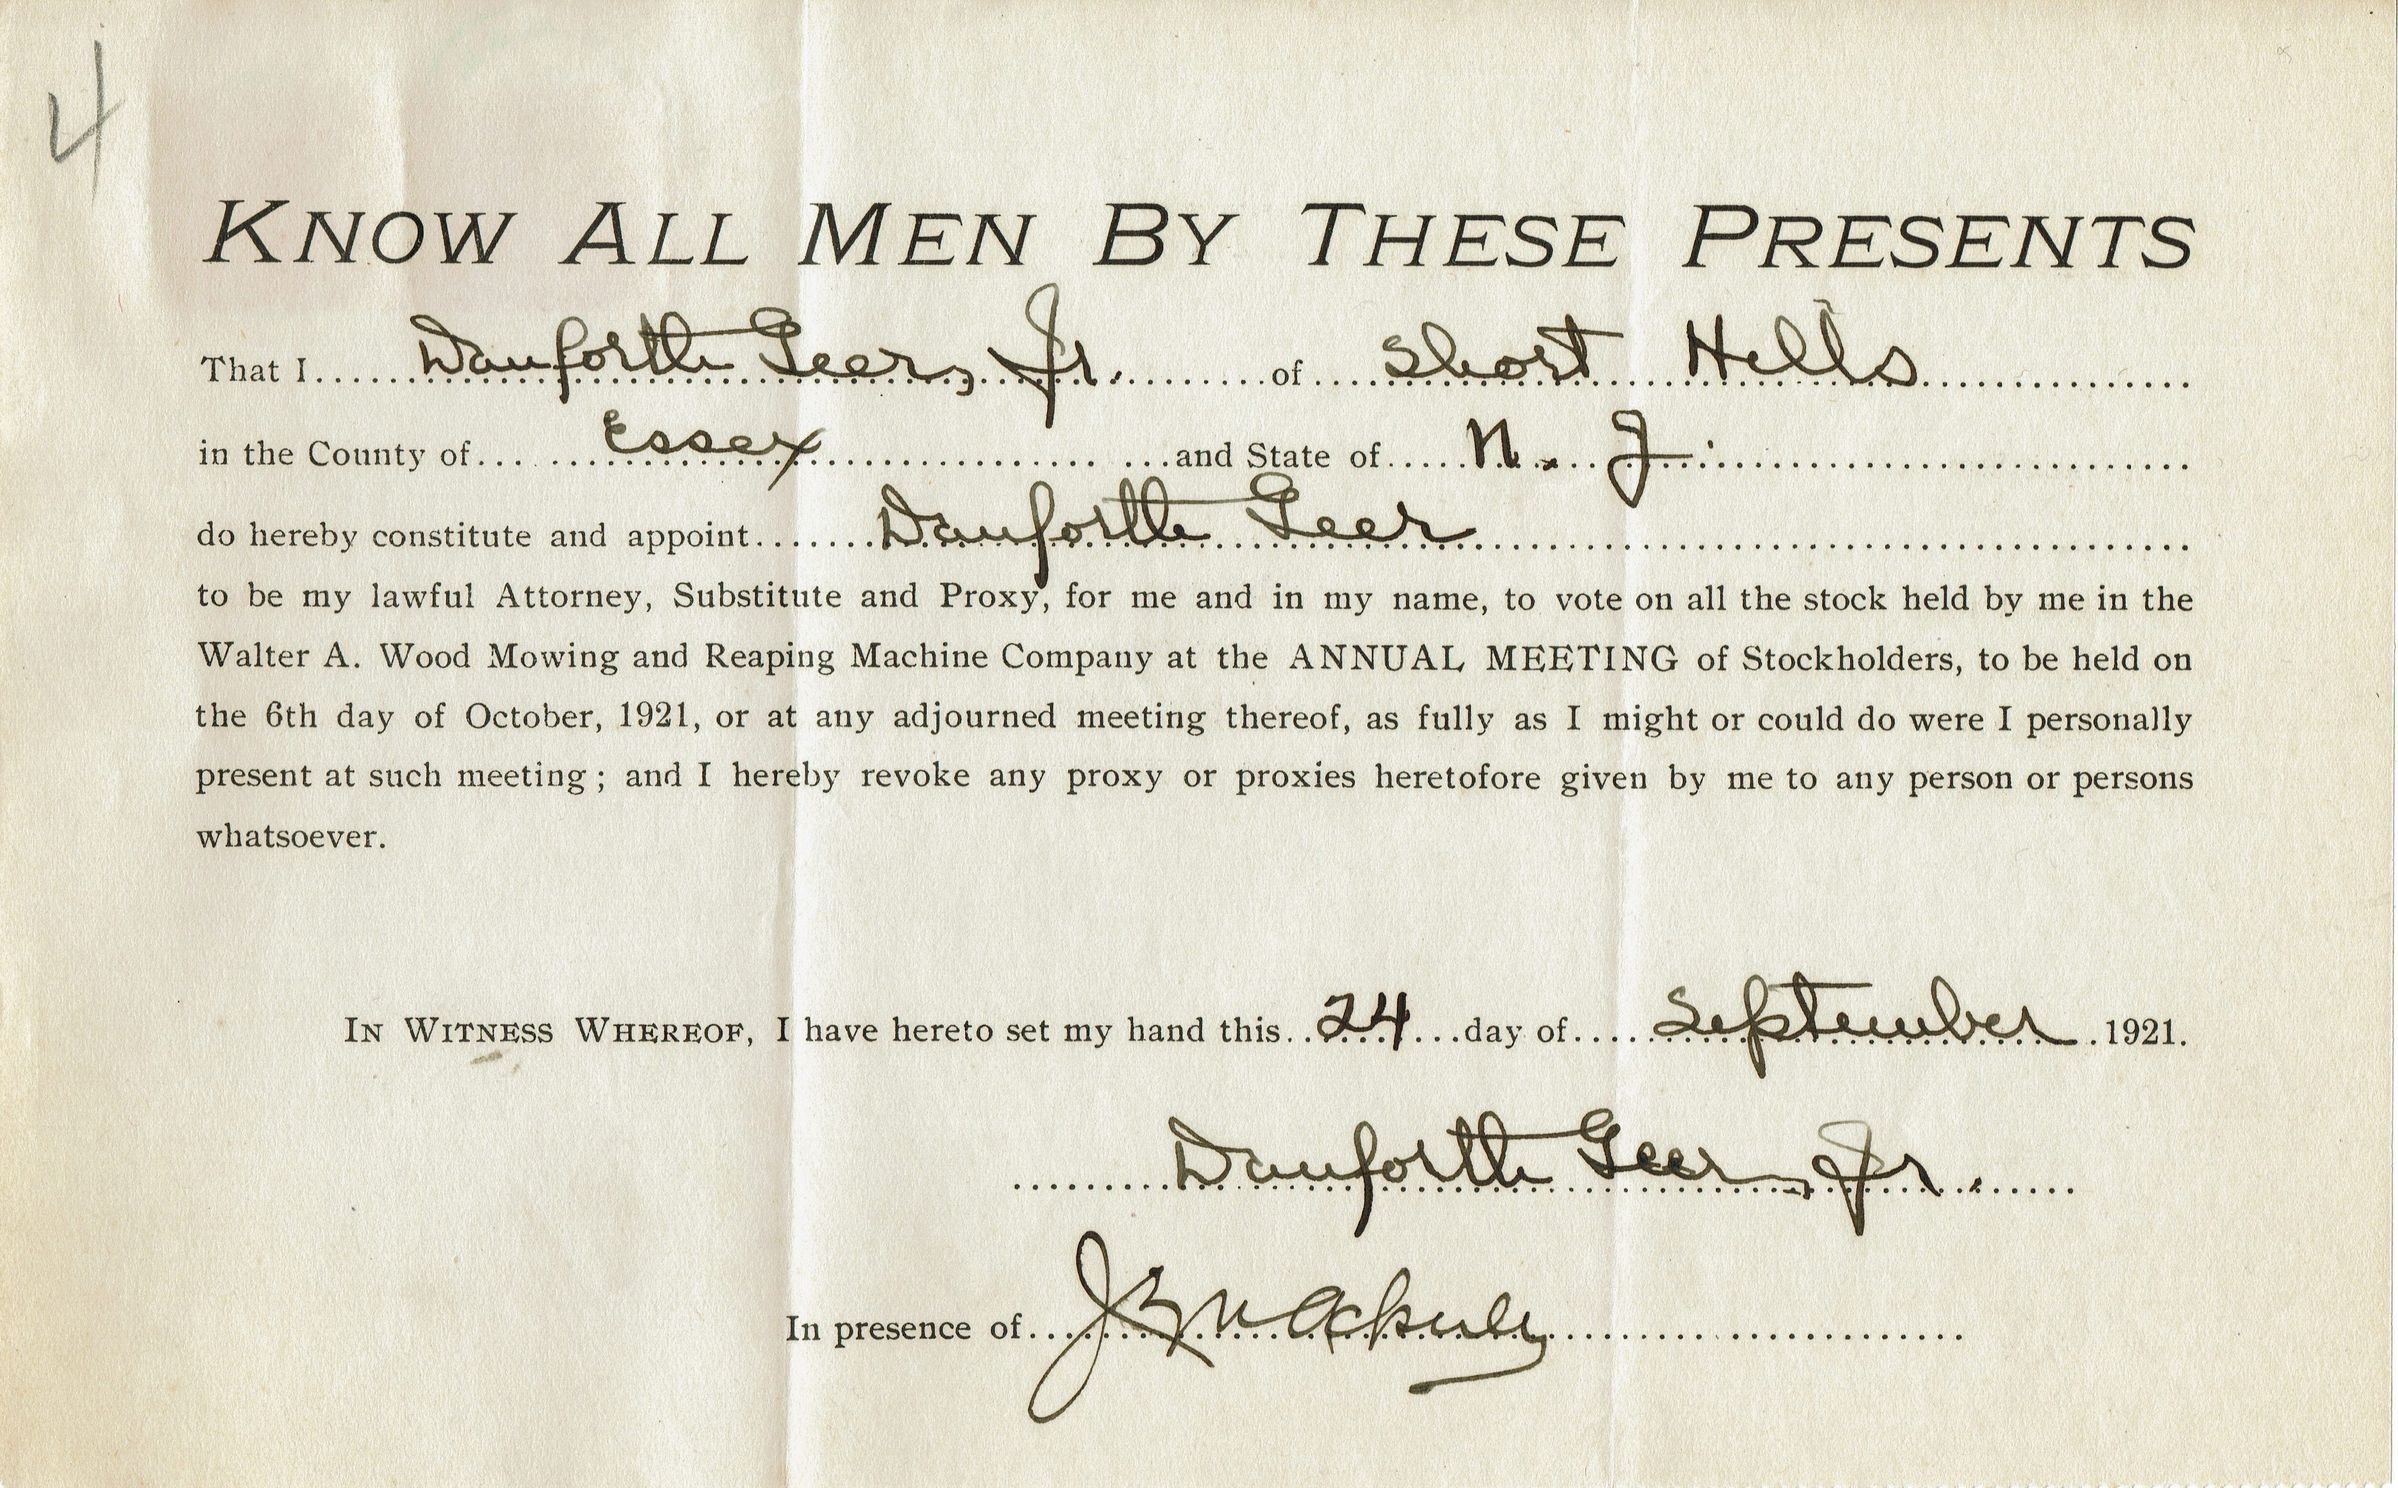 4
KNOW ALL MEN BY THESE PRESENTS
That I Danforth Geer, Jr. of Short Hills
in the County of Essex and State of N. J.
do hereby constitute and appoint Danforth Geer
to be my lawful Attorney, Substitute and Proxy, for me and in my name, to vote on all the stock held by me in the
Walter A. Wood Mowing and Reaping Machine Company at the ANNUAL MEETING of Stockholders, to be held on
the 6th day of October, 1921, or at any adjourned meeting thereof, as fully as I might or could do were I personally
present at such meeting; and I hereby revoke any proxy or proxies heretofore given by me to any person or persons
whatsoever.
IN WITNESS WHEREOF, I have hereto set my hand this 24 day of September 1921.
Danforth Geer, Jr.
In presence of